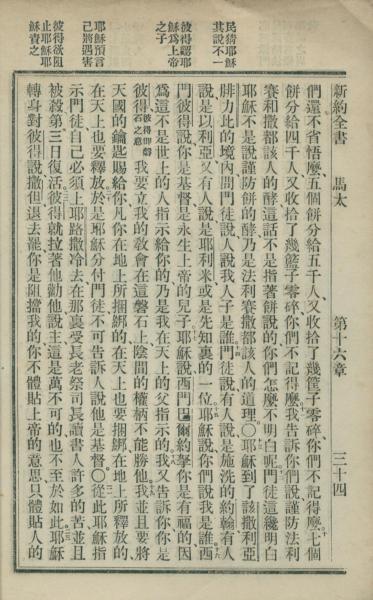 新約全書 馬太 第十六章 三十四
民猜耶穌
其說不一
彼得認耶
穌為上帝
之子
耶穌預言
己將遇害
彼得欲阻
止耶穌耶
穌責之
們還不省悟麼五個餅分給五千人又收拾了幾筐子零碎你們不記得麼七個
餅分給四千人又收拾了幾籃子零碎你們不記得麼我告訴你們說謹防法利
賽和撒都該人的酵這話不是指著餅說的你們怎麼不明白呢門徒這纔明白
耶穌不是說謹防餅的酵乃是法利賽撒都該人的道理〇耶穌到了該撒利亞
腓力比的境內問門徒說人說我人子是誰門徒說有人說是施洗的約翰有人
說是以利亞又有人說是耶利米或是先知裏的一位耶穌說你們說我是誰西
門彼得說你是基督是永生上帝的兒子耶穌說西門巴爾約拏你是有福的因
為這不是世上的人指示給你的乃是我在天上的父指示的我又告訴你你是
彼得彼得即磐石之意我要立我的教會在這磐石上陰間的權柄不能勝他我並且要將
天國的鑰匙賜給你凡你在地上所捆綁的在天上也要捆綁在地上所釋放的
在天上也要釋放於是耶穌分付門徒不可告訴人說他是基督〇從此耶穌指
示門徒自己必須上耶路撒冷去在那裏受長老祭司長讀書人許多的苦並且
被殺第三日復活彼得就拉著他勸他說主這是萬不可的也不至於如此耶穌
轉身對彼得說撒但退去罷你是阻擋我的你不體貼上帝的意思只體貼人的